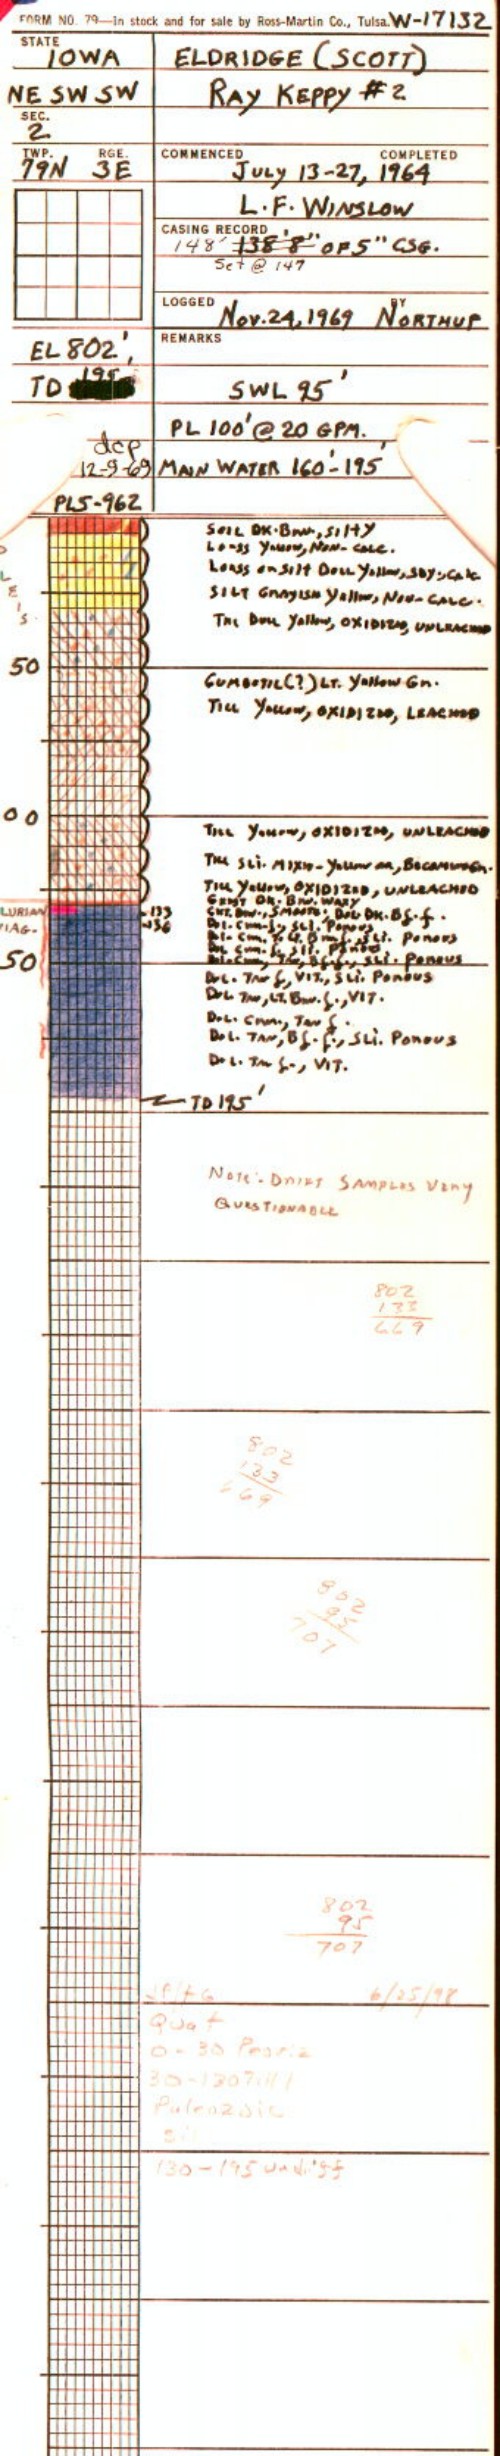 FORM NO. 79—In stock and for sale by Ross-Martin Co., Tulsa. W-17132
STATE
IOWA
ELDRIDGE (SCOTT)
NE SW SW
RAY KEPPY #2
SEC.
2
TWP. RGE.
79N 3E
COMMENCED COMPLETED
JULY 13-27, 1964
L.F. WINSLOW
CASING RECORD
148' 138'8" OF 5" CSG.
Set @ 147
LOGGED BY
Nov. 24, 1969 NORTHUP
EL 802'
REMARKS
TD 195'
SWL 95'
PL 100' @ 20 GPM.
dcp
12-9-69
MAIN WATER 160'-195'
PLS-962
SOIL DK. BRN., SILTY
LOESS YELLOW, NON-CALC.
LOESS OR SILT DULL YELLOW, SDY., CALC
SILT GRAYISH YELLOW, NON-CALC.
TILL DULL YELLOW, OXIDIZED, UNLEACHED
L
E
I
S
50
GUMBOTIL(?) LT. YELLOW GN.
TILL YELLOW, OXIDIZED, LEACHED
00
TILL YELLOW, OXIDIZED, UNLEACHED
TILL SLI. MIXED-YELLOW OR,
TILL YELLOW, OXIDIZED, UNLEACHED
DK. BRN. WAXY
LURIAN
133
CHT. BRN., SMOOTH; DOL DK. BF. f.
IAG.
136
DOL. CRM. f., SLI. POROUS
f., SLI. POROUS
DOL. CRM. f., SLI. POROUS
50
f., SLI. POROUS
DOL. TAN f., VIT., SLI. POROUS
DOL. TAN, LT. BRN. f., VIT.
DOL. CRM., TAN f.
DOL. TAN, BF. f., SLI. POROUS
DOL. TAN f., VIT.
TD 195'
NOTE: DRIFT SAMPLES VERY
QUESTIONABLE
802
133
669
802
133
669
802
95
707
802
95
707
6/25/98
Quat
0-30 Peoria
30-130?Ill
Paleozoic
Sil
130-195 undiff